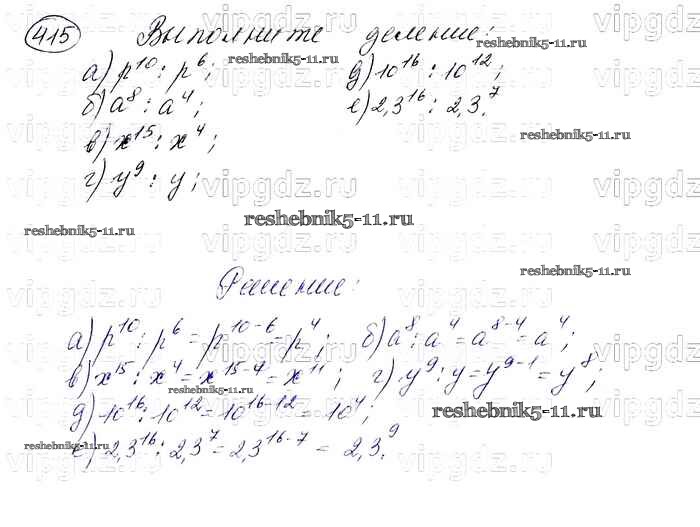 415 Выполните деление:
а) p¹⁰ : p⁶; д) 10¹⁶ : 10¹²;
б) a⁸ : a⁴; е) 2,3¹⁶ : 2,3⁷.
в) x¹⁵ : x⁴;
г) y⁹ : y;
Решение:
а) p¹⁰ : p⁶ = p¹⁰⁻⁶ = p⁴; б) a⁸ : a⁴ = a⁸⁻⁴ = a⁴;
в) x¹⁵ : x⁴ = x¹⁵⁻⁴ = x¹¹; г) y⁹ : y = y⁹⁻¹ = y⁸;
д) 10¹⁶ : 10¹² = 10¹⁶⁻¹² = 10⁴;
е) 2,3¹⁶ : 2,3⁷ = 2,3¹⁶⁻⁷ = 2,3⁹.
vipgdz.ru
reshebnik5-11.ru